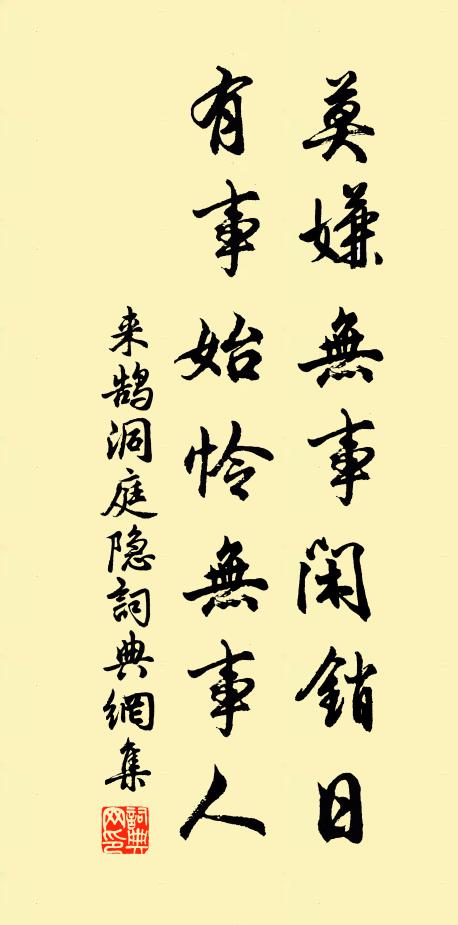 莫嫌無事閑銷日
有事始怜無事人
来鹄洞庭隐詞典網集
詞典網印